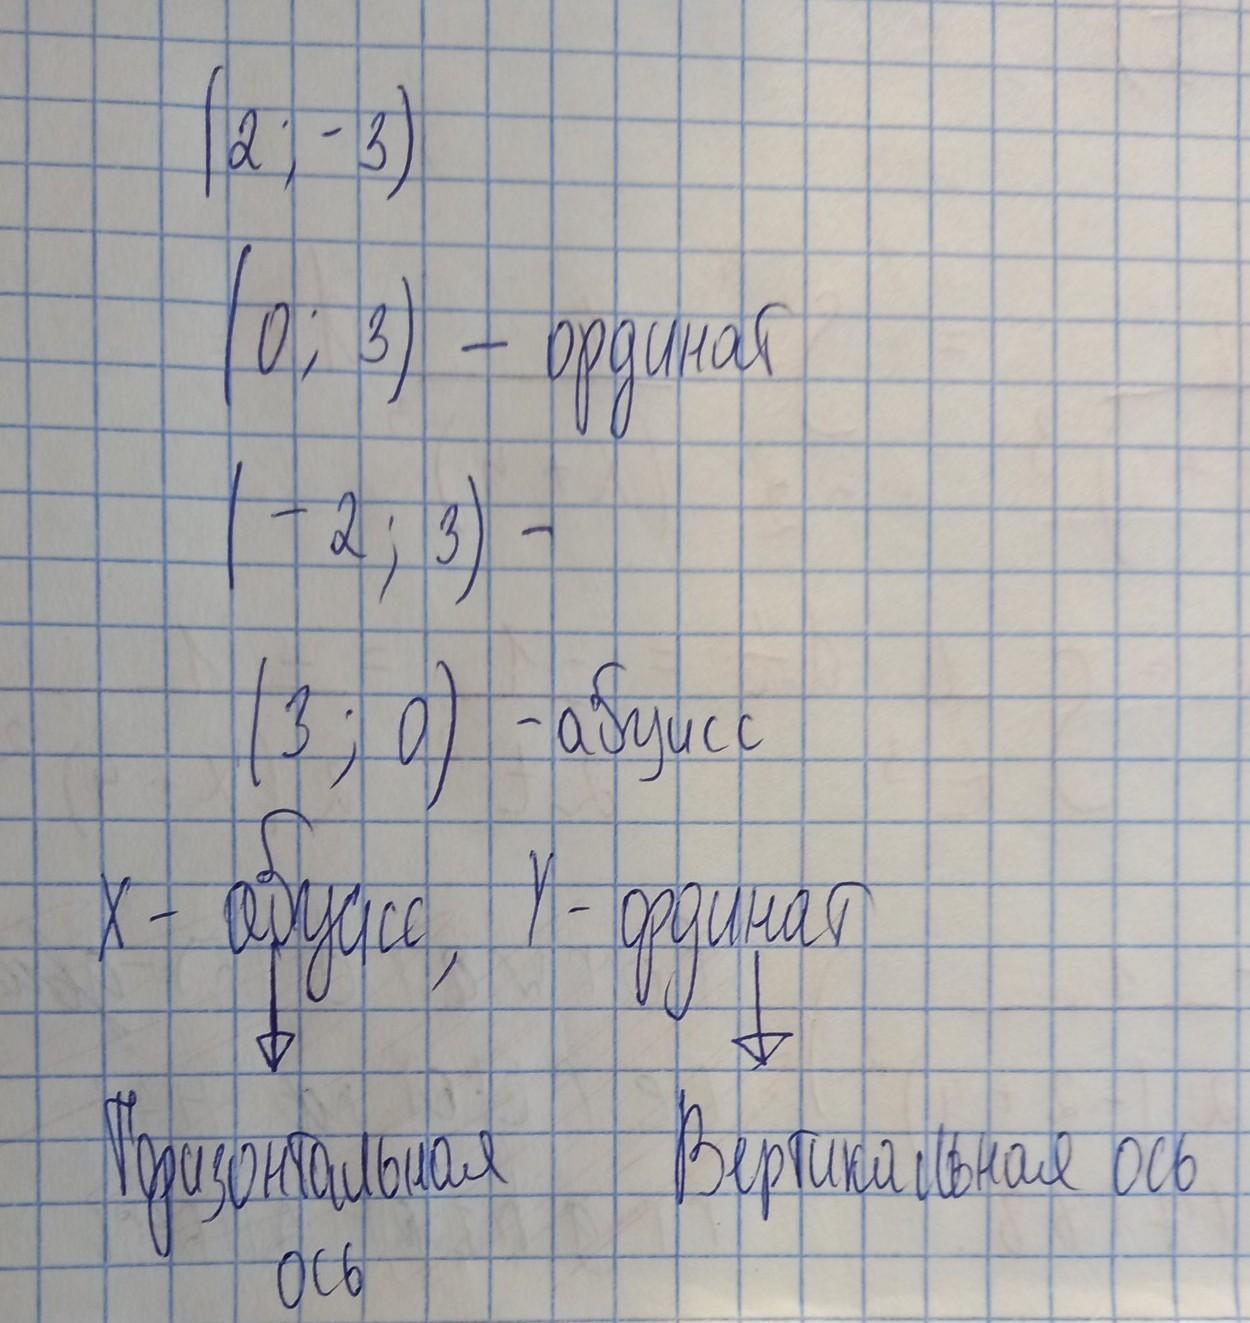 (2; -3)
(0; 3) - ординат
(-2; 3) -
(3; 0) - абцисс
X - абцисс, Y - ординат
Горизонтальная Вертикальная ось
ось